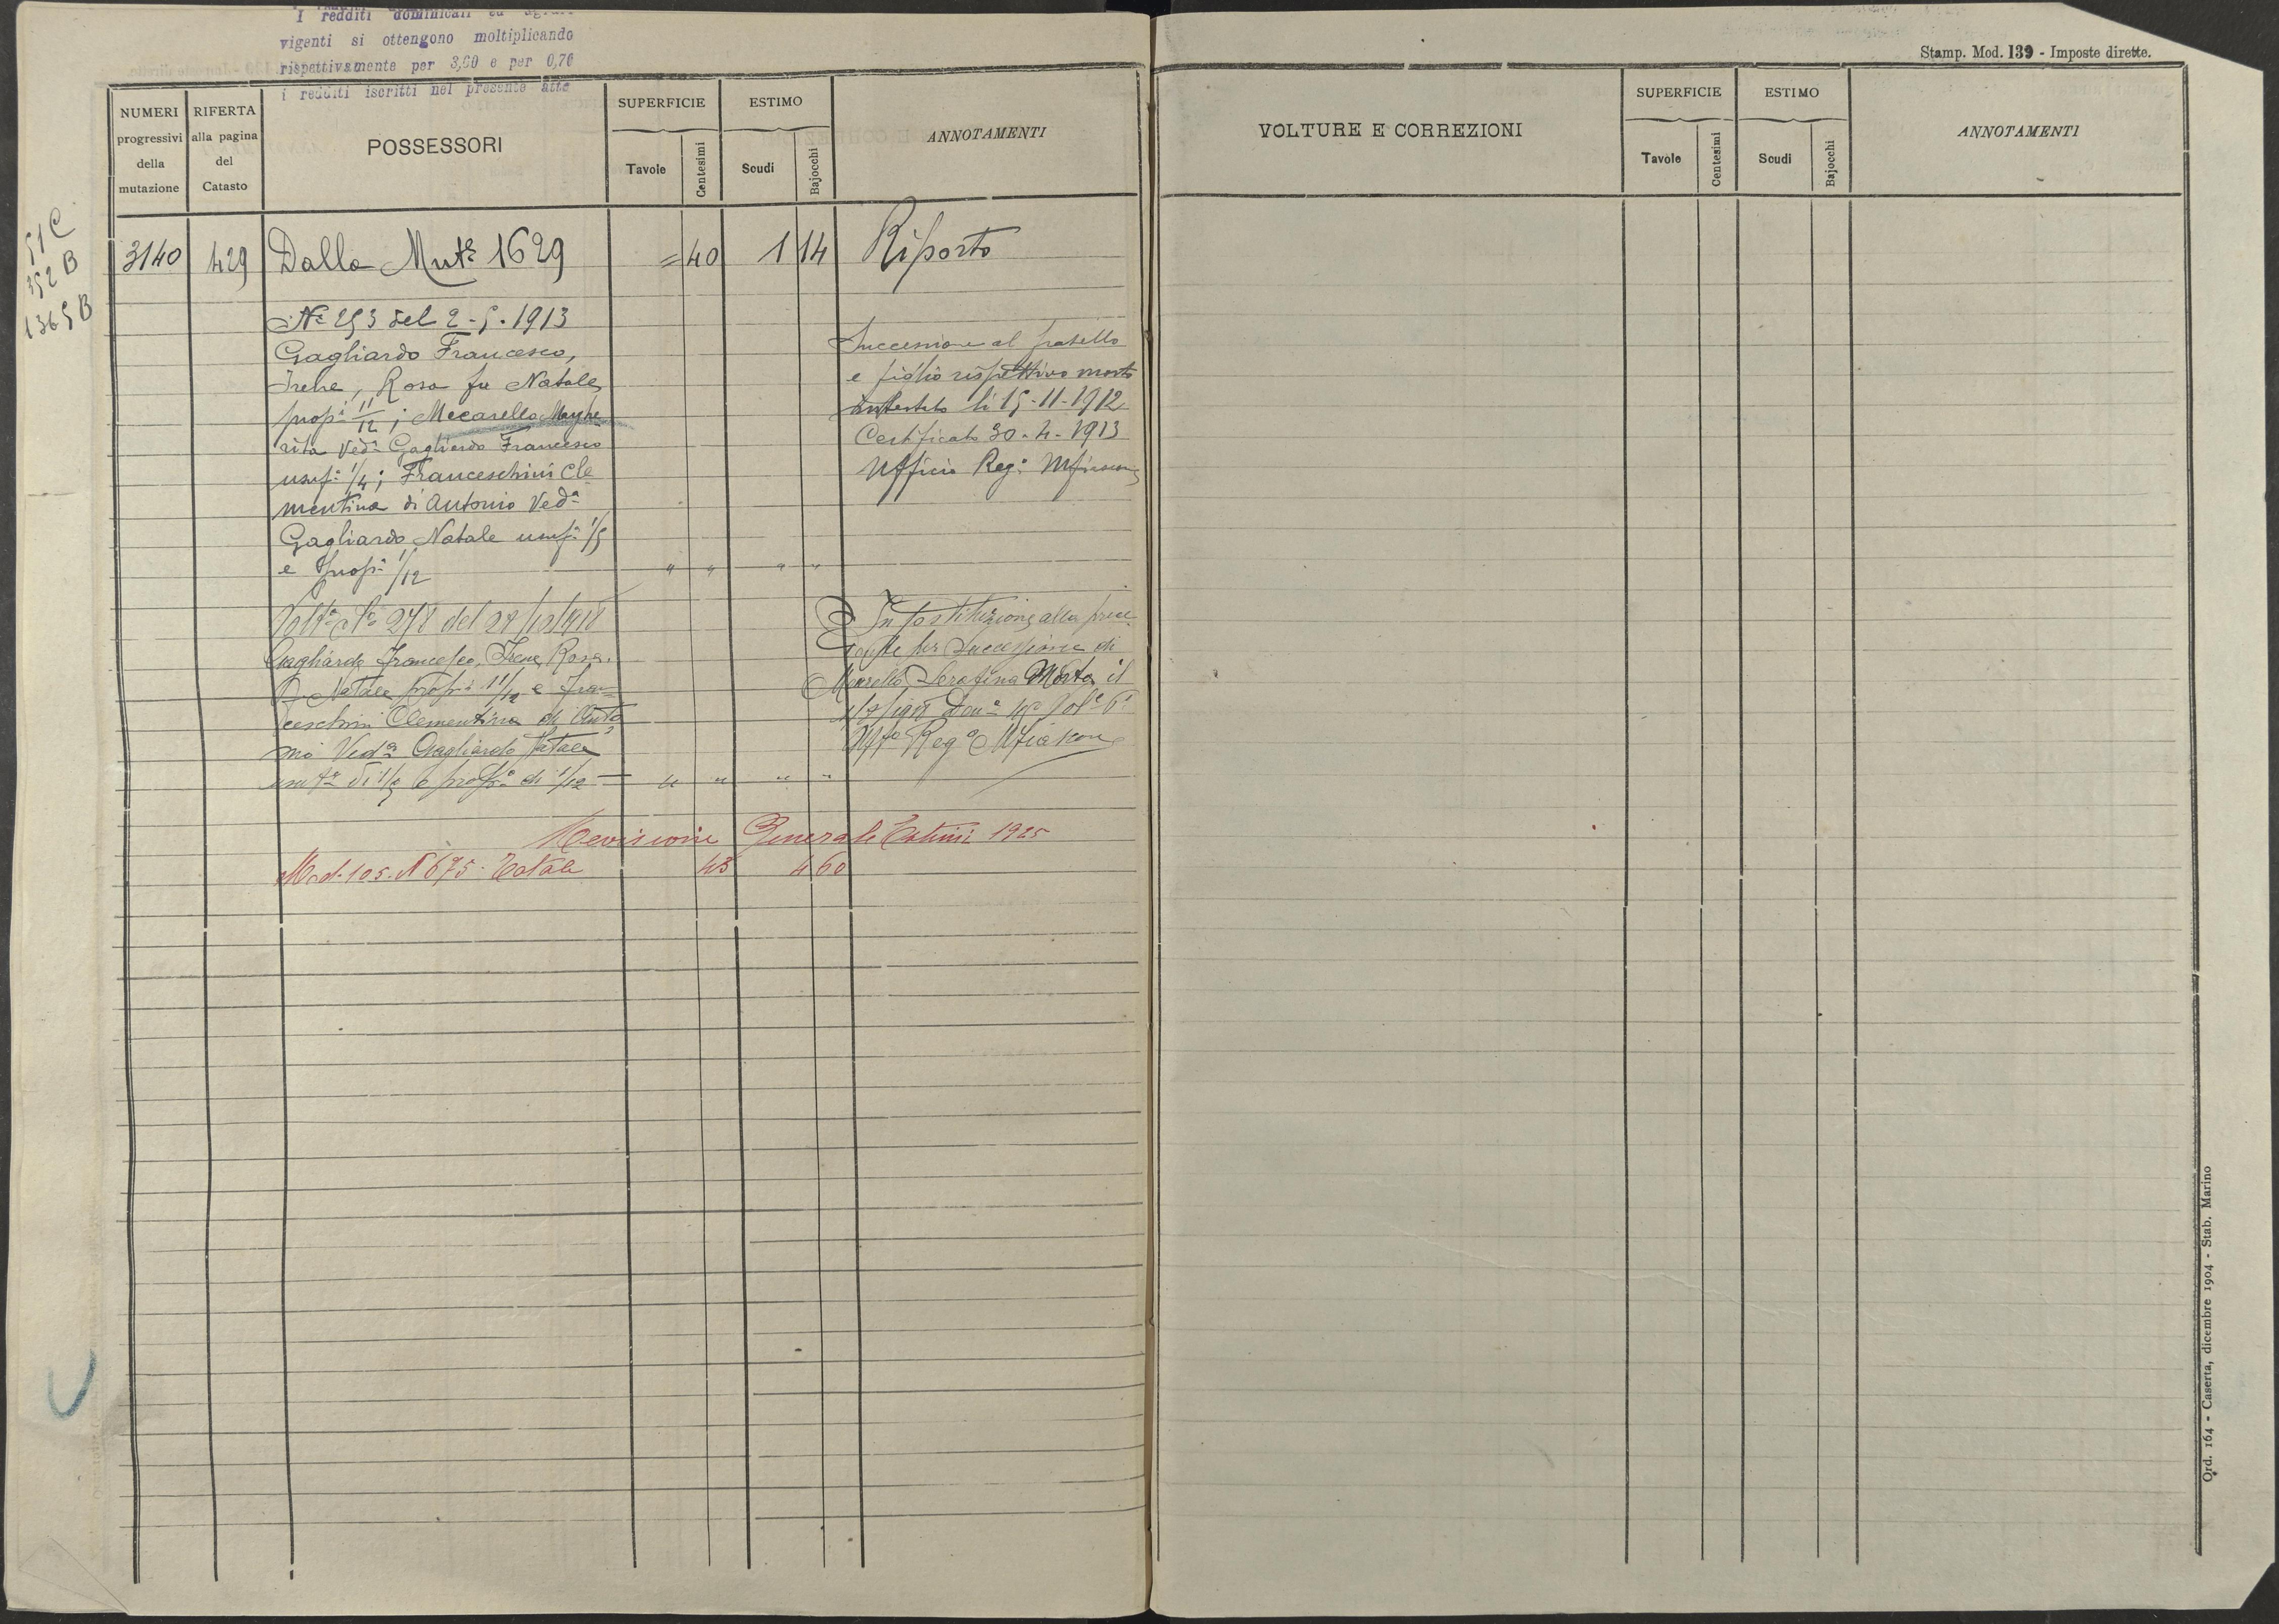 I redditi dominicali
vigenti si ottengono moltiplicando
rispettivamente per 3,60 e per 0,76
i redditi iscritti nel presente atto
Stamp. Mod. 139 - Imposte dirette.
NUMERI progressivi della mutazione
RIFERTA alla pagina del Catasto
POSSESSORI
SUPERFICIE
Tavole
Centesimi
ESTIMO
Scudi
Bajocchi
ANNOTAMENTI
VOLTURE E CORREZIONI
SUPERFICIE
Tavole
Centesimi
ESTIMO
Scudi
Bajocchi
ANNOTAMENTI
51 C
352 B
1365 B
3140 429 Dalla Mutª 1629 = 40 1 14 Riporto
Nº 253 del 2-5-1913
Gagliardo Francesco,
Irene, Rosa fu Natale
propⁱ 11/12; Mecarella Marghe
rita Vedª Gagliardo Francesco
usufª 1/4; Franceschini Cle
mentina di Antonio Vedª
Gagliardo Natale usufª 1/5
e propª 1/12 " " " "
Successione al fratello
e figlio rispettivo morto
intestato li 15-11-1912
Certificato 30-4-1913
Ufficio Regº Mfiascone
Voltª Nº 278 del 27/12/1918
Gagliardo Francesco, Irene, Rosa
fu Natale propⁱ 11/12 e Fran=
ceschini Clementina di Anto
nio Vedª Gagliardo Natale
usufª di 1/5 e propª di 1/12 " " " "
In sostituzione alla prece
dente per Successione di
Serafina Morta il
Uffº Regº Mfiascone
Revisione Generale Estimi 1925
Mod. 105. N 675. Totale 43 4 60
Ord. 164 - Caserta, dicembre 1904 - Stab. Marino